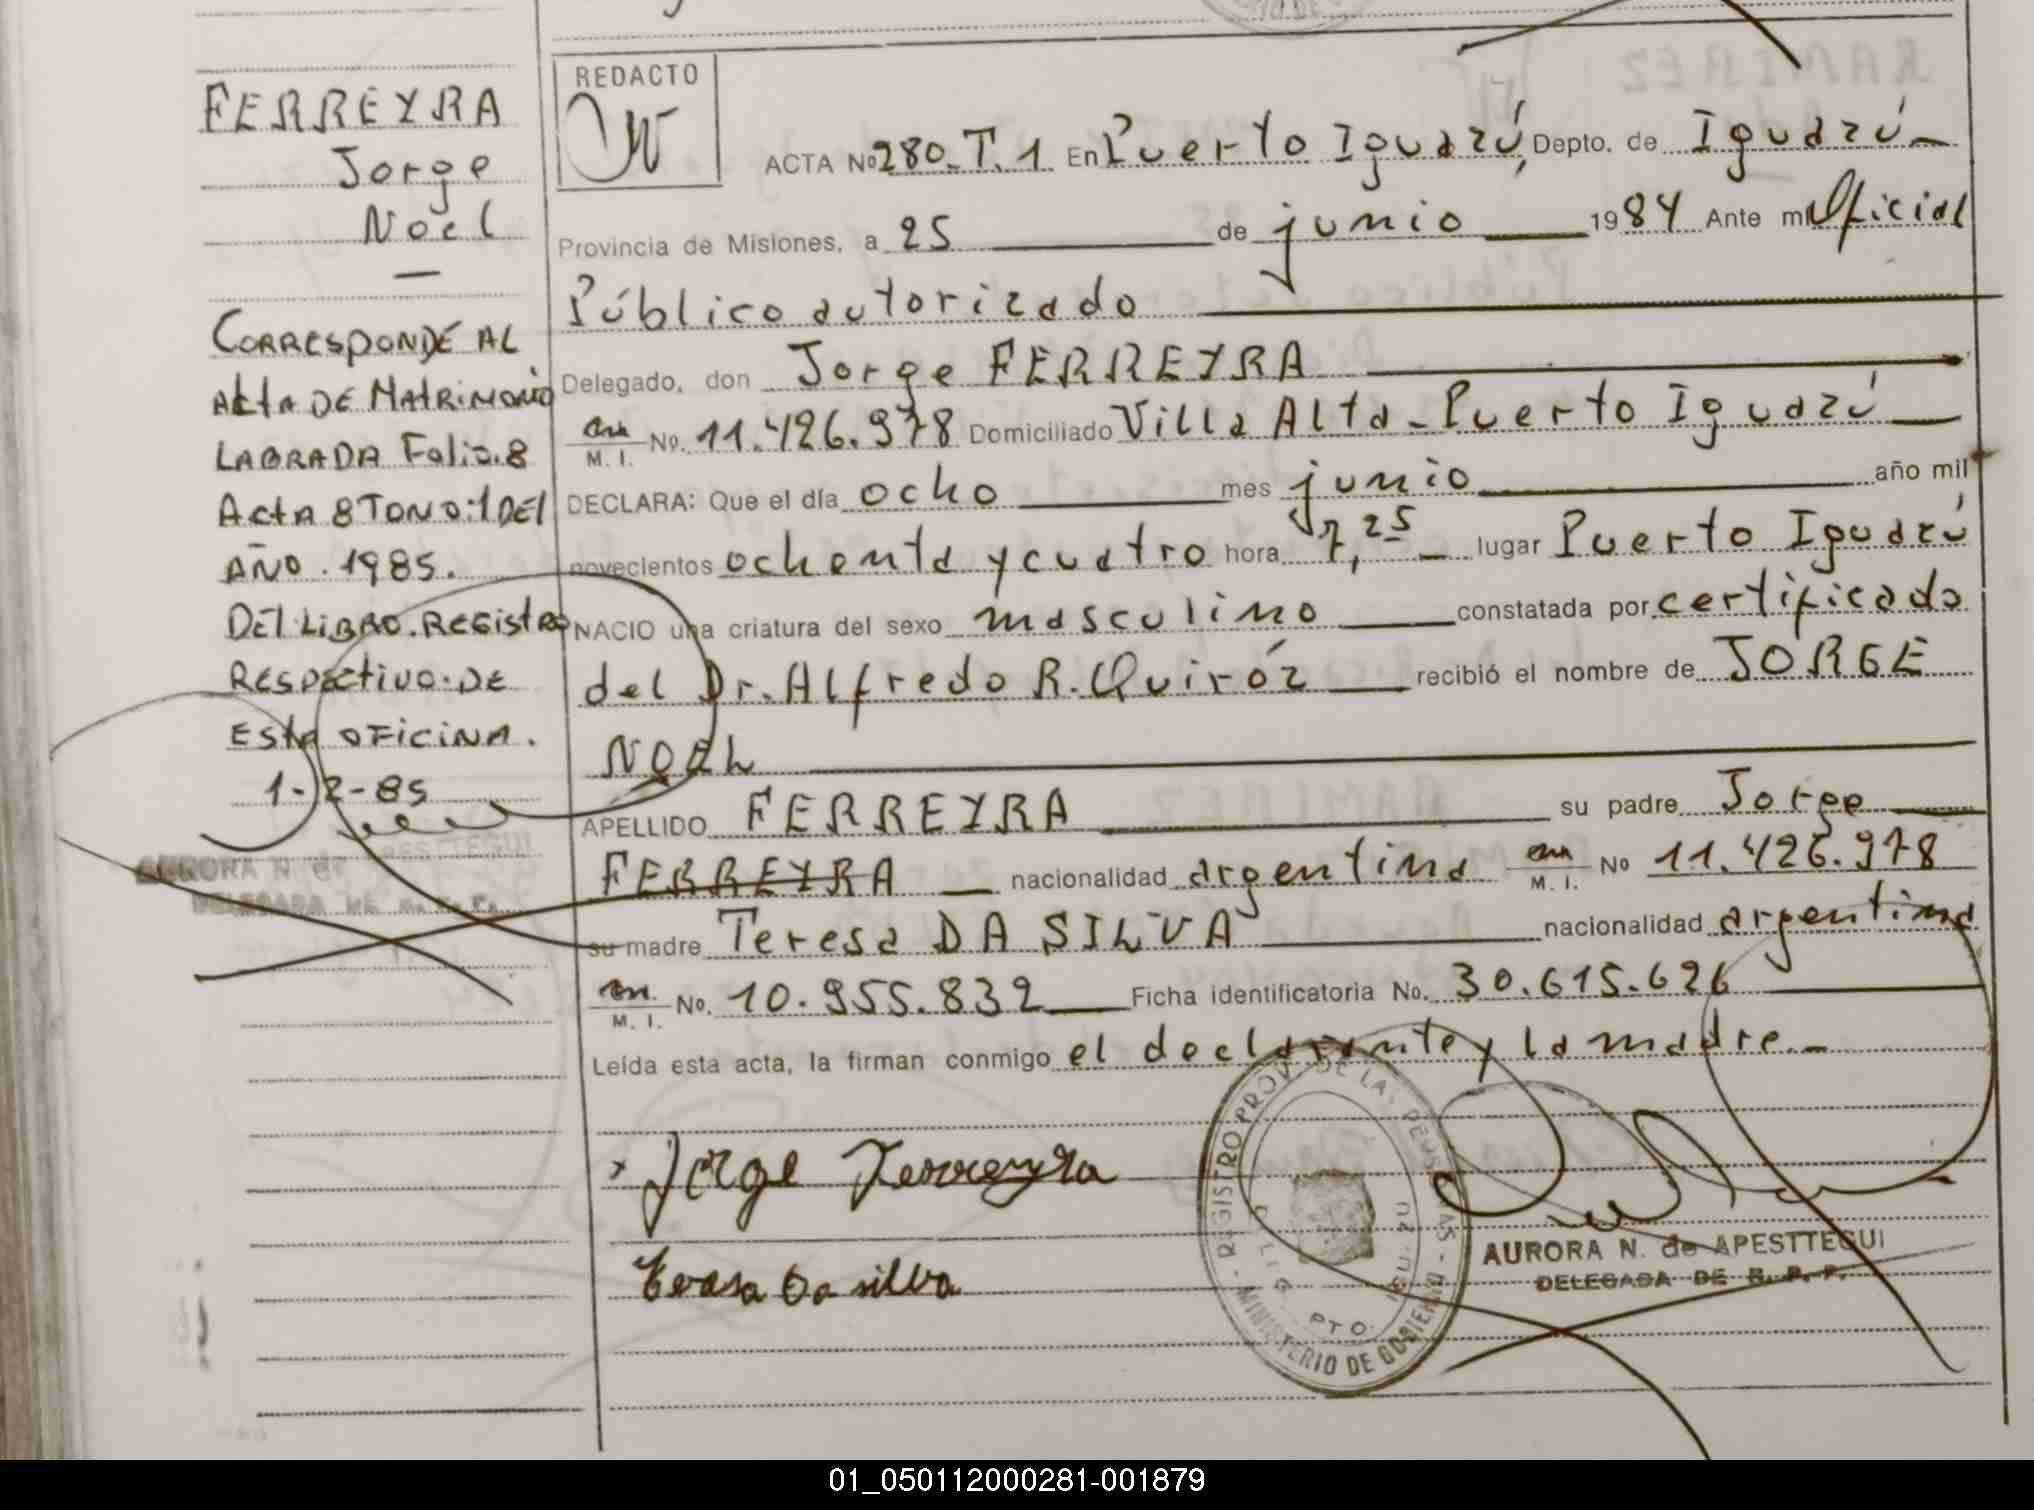 FERREYRA
Jorge
Noel
—
CORRESPONDE AL
ACTA DE MATRIMONIO
LABRADA Folio.8
ACTA 8 TOMO:1 DEL
AÑO.1985.
DEL LIBRO.REGISTRO
RESPECTIVO.DE
ESTA OFICINA.
1-2-85
AURORA N. de APESTTEGUI
DELEGADA DE R. P. P.
REDACTO
ACTA Nº 280.T.1 En Puerto Iguazú, Depto. de Iguazú
Provincia de Misiones, a 25 de junio 1984 Ante mi Oficial
Público autorizado
Delegado, don Jorge FERREYRA
M. I. No. 11.426.978 Domiciliado Villa Alta - Puerto Iguazú
DECLARA: Que el día ocho mes junio año mil
novecientos ochenta y cuatro hora 7,25 lugar Puerto Iguazú
NACIO una criatura del sexo masculino constatada por certificado
del Dr. Alfredo R. Quiróz recibió el nombre de JORGE
NOEL
APELLIDO FERREYRA su padre Jorge
FERREYRA nacionalidad argentina M. I. No 11.426.978
su madre Teresa DA SILVA nacionalidad argentina
M. I. No. 10.955.832 Ficha identificatoria No. 30.615.626
Leída esta acta, la firman conmigo el declarante y la madre.-
x Jorge Ferreyra
Teresa Da silva
REGISTRO PROV. DE LAS PERSONAS - MINISTERIO DE GOBIERNO
PTO. IGUAZU
AURORA N. de APESTTEGUI
DELEGADA DE R. P. P.
01_050112000281-001879